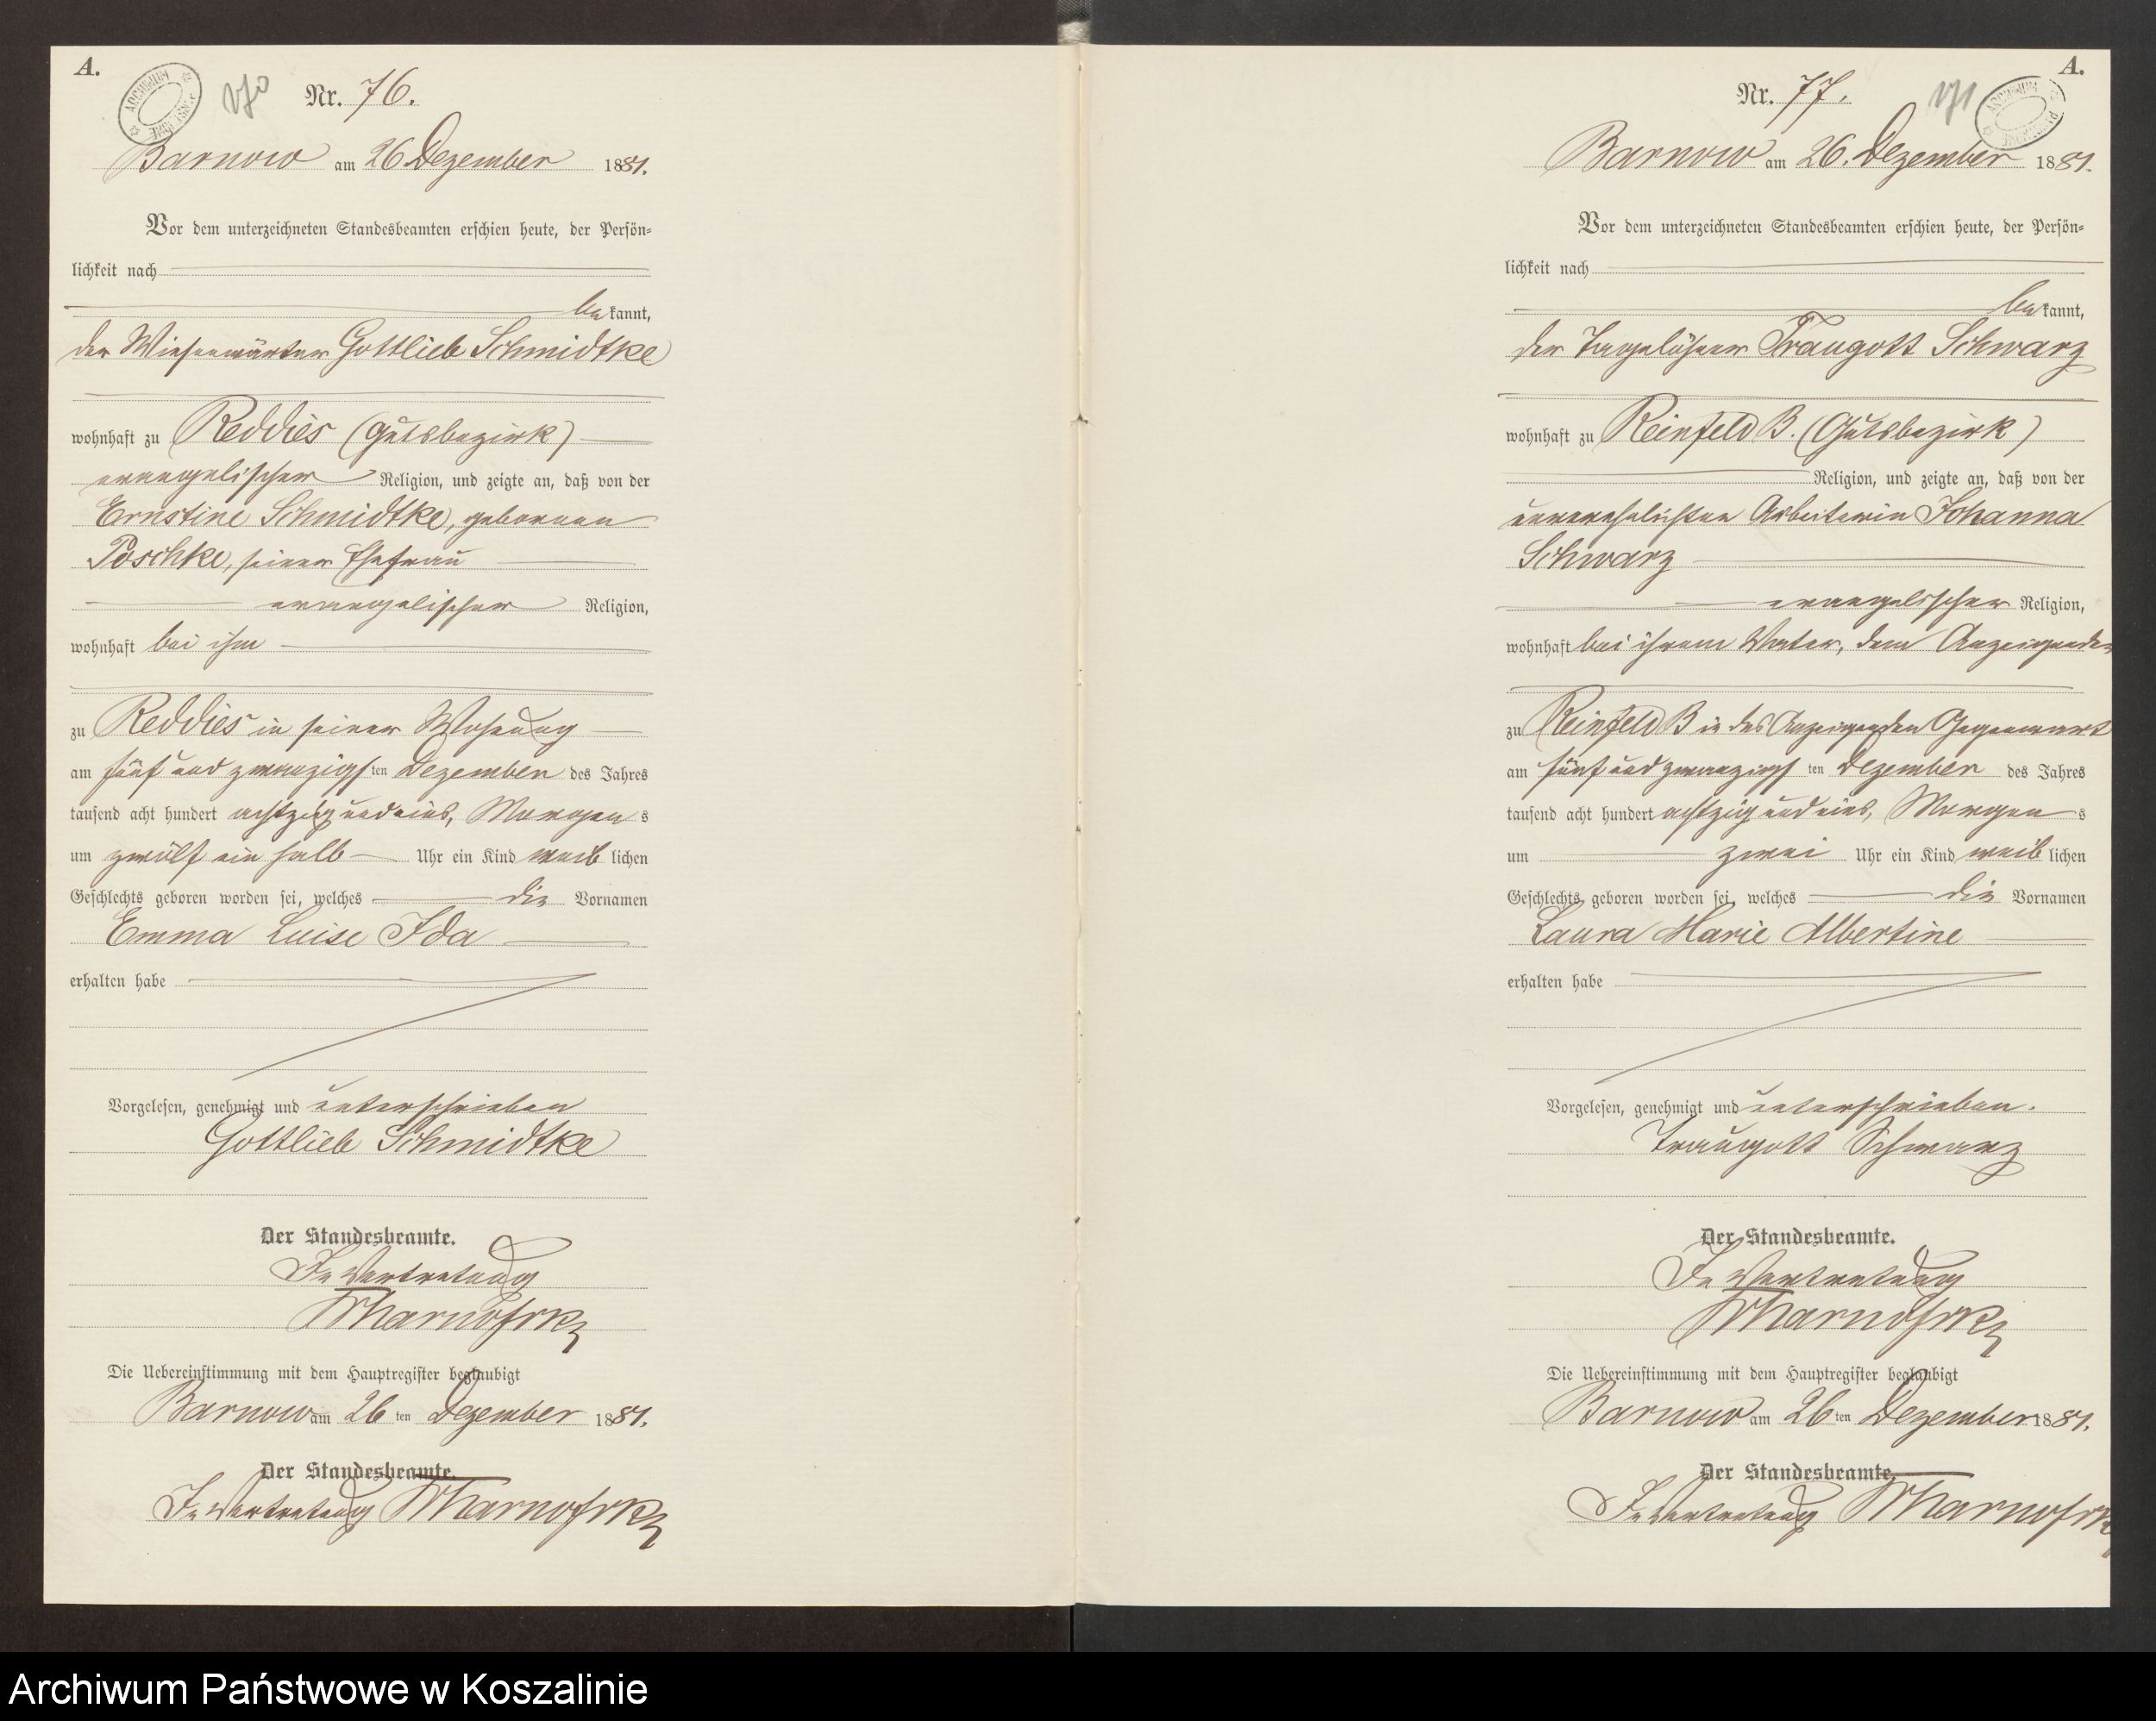 A.
ARCHIWUM
170
Nr. 76.
Barnow am 26 Dezember 1881.
Vor dem unterzeichneten Standesbeamten erschien heute, der Persön-
lichkeit nach
bekannt,
der Wiesenwärter Gottlieb Schmidtke
wohnhaft zu Reddies (Gutsbezirk)
evangelischer Religion, und zeigte an, daß von der
Ernstine Schmidtke, geborenen
Poschke, seiner Ehefrau
evangelischer Religion,
wohnhaft bei ihm
zu Reddies in seiner Wohnung
am fünf und zwanzigsten Dezember des Jahres
tausend acht hundert achtzig und eins, Morgens
um zwölf ein halb Uhr ein Kind weiblichen
Geschlechts geboren worden sei, welches die Vornamen
Emma Luise Ida
erhalten habe
Vorgelesen, genehmigt und unterschrieben
Gottlieb Schmidtke
Der Standesbeamte.
In Vertretung
Die Uebereinstimmung mit dem Hauptregister beglaubigt
Barnow am 26ten Dezember 1881.
Der Standesbeamte.
In Vertretung
A.
171
ARCHIWUM
Nr. 77.
Barnow am 26. Dezember 1881.
Vor dem unterzeichneten Standesbeamten erschien heute, der Persön-
lichkeit nach
bekannt,
der Tagelöhner Traugott Schwarz
wohnhaft zu Reinfeld B. (Gutsbezirk)
Religion, und zeigte an, daß von der
unverehelichten Arbeiterin Johanna
Schwarz
evangelischer Religion,
wohnhaft bei ihrem Vater, dem Anzeigenden
zu Reinfeld B in des Anzeigenden Gegenwart
am fünf und zwanzigsten Dezember des Jahres
tausend acht hundert achtzig und eins, Morgens
um zwei Uhr ein Kind weiblichen
Geschlechts geboren worden sei, welches die Vornamen
Laura Marie Albertine
erhalten habe
Vorgelesen, genehmigt und unterschrieben.
Traugott Schwarz
Der Standesbeamte.
In Vertretung
Die Uebereinstimmung mit dem Hauptregister beglaubigt
Barnow am 26ten Dezember 1881.
Der Standesbeamte.
In Vertretung
Archiwum Państwowe w Koszalinie